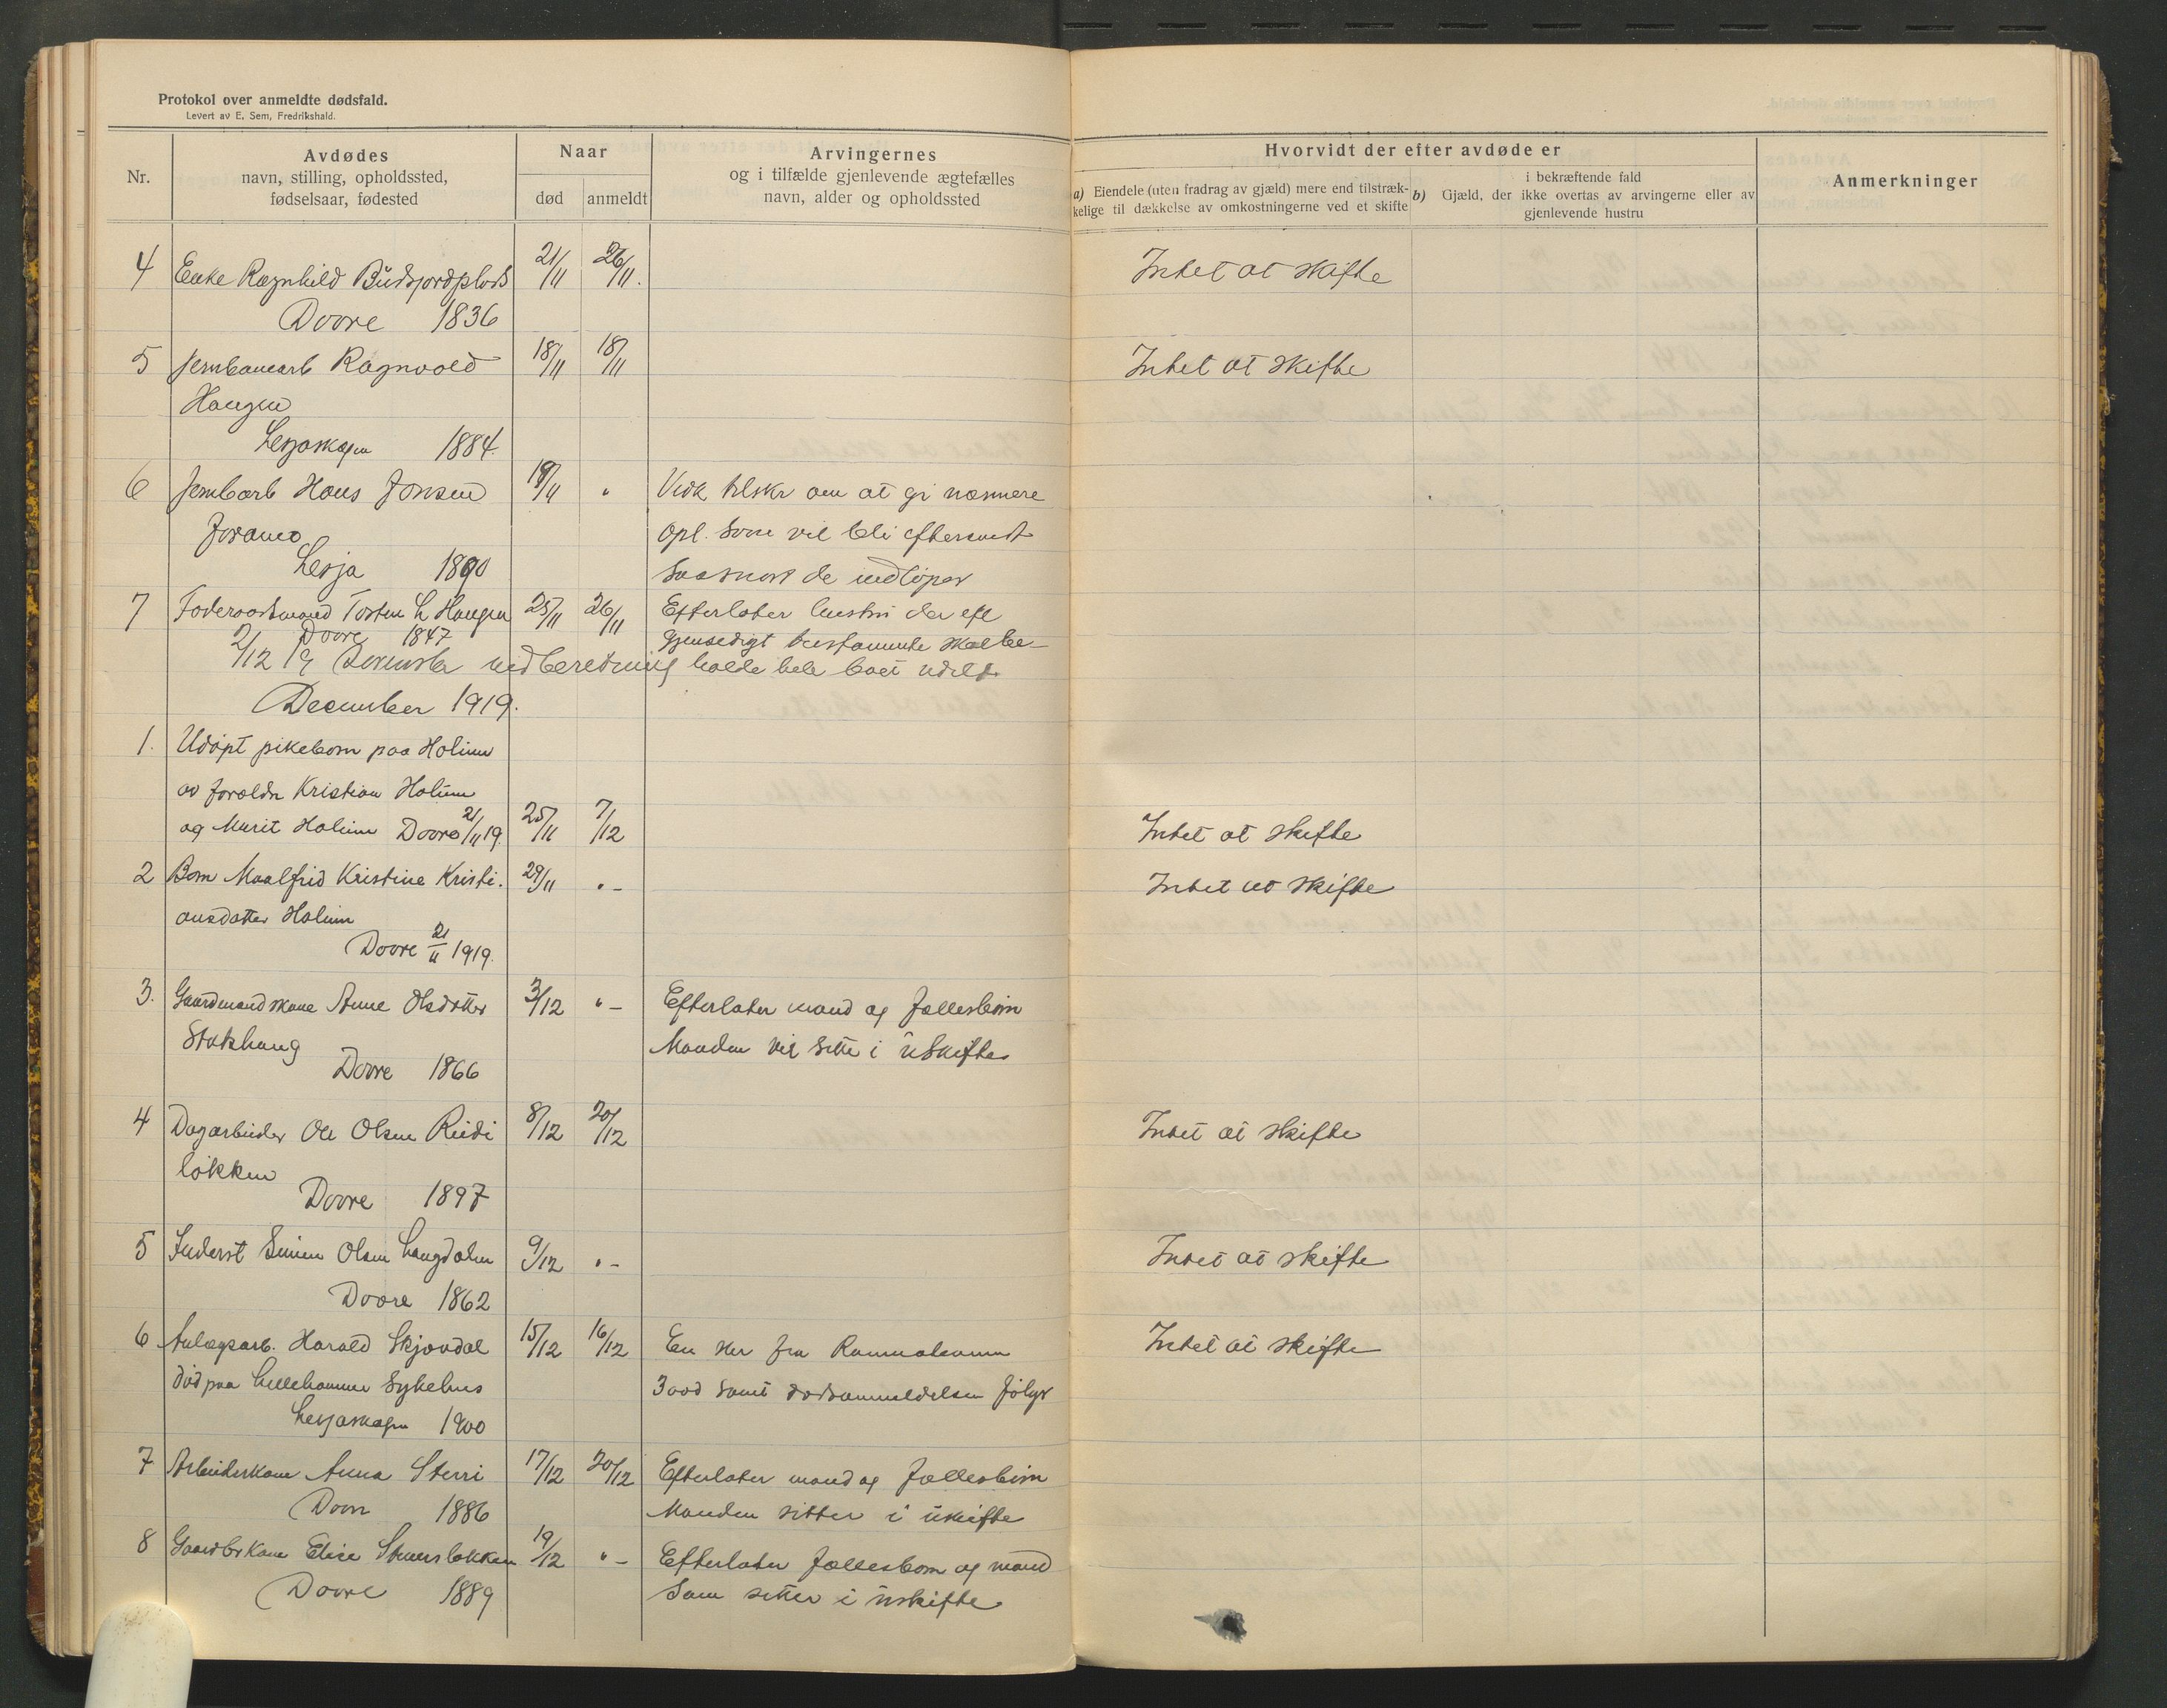 Protokol over anmeldte dødsfald.
Levert av E. Sem, Fredrikshald.
Nr.
Avdødes
navn, stilling, opholdssted,
fødselsaar, fødested
Naar
død
anmeldt
Arvingernes
og i tilfælde gjenlevende ægtefælles
navn, alder og opholdssted
Hvorvidt der efter avdøde er
a) Eiendele (uten fradrag av gjæld) mere end tilstræk-
kelige til dækkelse av omkostningerne ved et skifte
i bekræftende fald
b) Gjæld, der ikke overtas av arvingerne eller av
gjenlevende hustru
Anmerkninger
4 Enke Ragnhild Budsjordplads 21/11 26/11. Intet at skifte
Dovre 1836
5 Jernbanearb Ragnvald 18/11 18/11 Intet at skifte
Haugen
Lesjaskogen 1884.
6 Jernbarb Hans Jonsen 18/11 " Vidk tilskr om at gi nærmere
Joramo opl. som vil bli eftersendt
Lesja 1890 saasnart de indløper
7 Foderaadsmand Tosten L Haugen 25/11 26/11 Efterlater hustru der eft
Dovre 1847 gjensidigt testamente skal be-
2/12 19 indberetning holde hele boet udelt.
December 1919.
1. Udøpt pikebarn paa Holum
av foreldre Kristian Holum
og Marit Holum Dovre 21/11 19. 25/11 7/12 Intet at skifte
2 Barn Maalfrid Kristine Kristi. 29/11 " – Intet at skifte
ansdatter Holum
Dovre 21/11 1919.
3. Gaardmandskone Anne Olsdatter 3/12 " – Efterlater mand og fællesbørn
Stakhaug Manden vil sitte i uskifte
Dovre 1866
4 Dagarbeider Ole Olsen Rudi 8/12 20/12 Intet at skifte
løkken
Dovre 1897
5 Inderst Simen Olsen Langdalen 9/12 " – Intet at skifte
Dovre 1862
6 Anlægsarb. Harald Skjøndal 15/12 16/12 En skr fra Intet at skifte
død paa Lillehammer Sykehus samt dødsanmeldelsen følger
Lesjaskogen 1900
7 Arbeiderkone Anna Sterri 17/12 20/12 Efterlater mand og fællesbørn
Dovre 1886 Manden sitter i uskifte
8 Gaardbrkone Elise Stuenslokken 19/12 " – Efterlater fællesbarn og mand
Dovre 1889 som sitter i uskifte